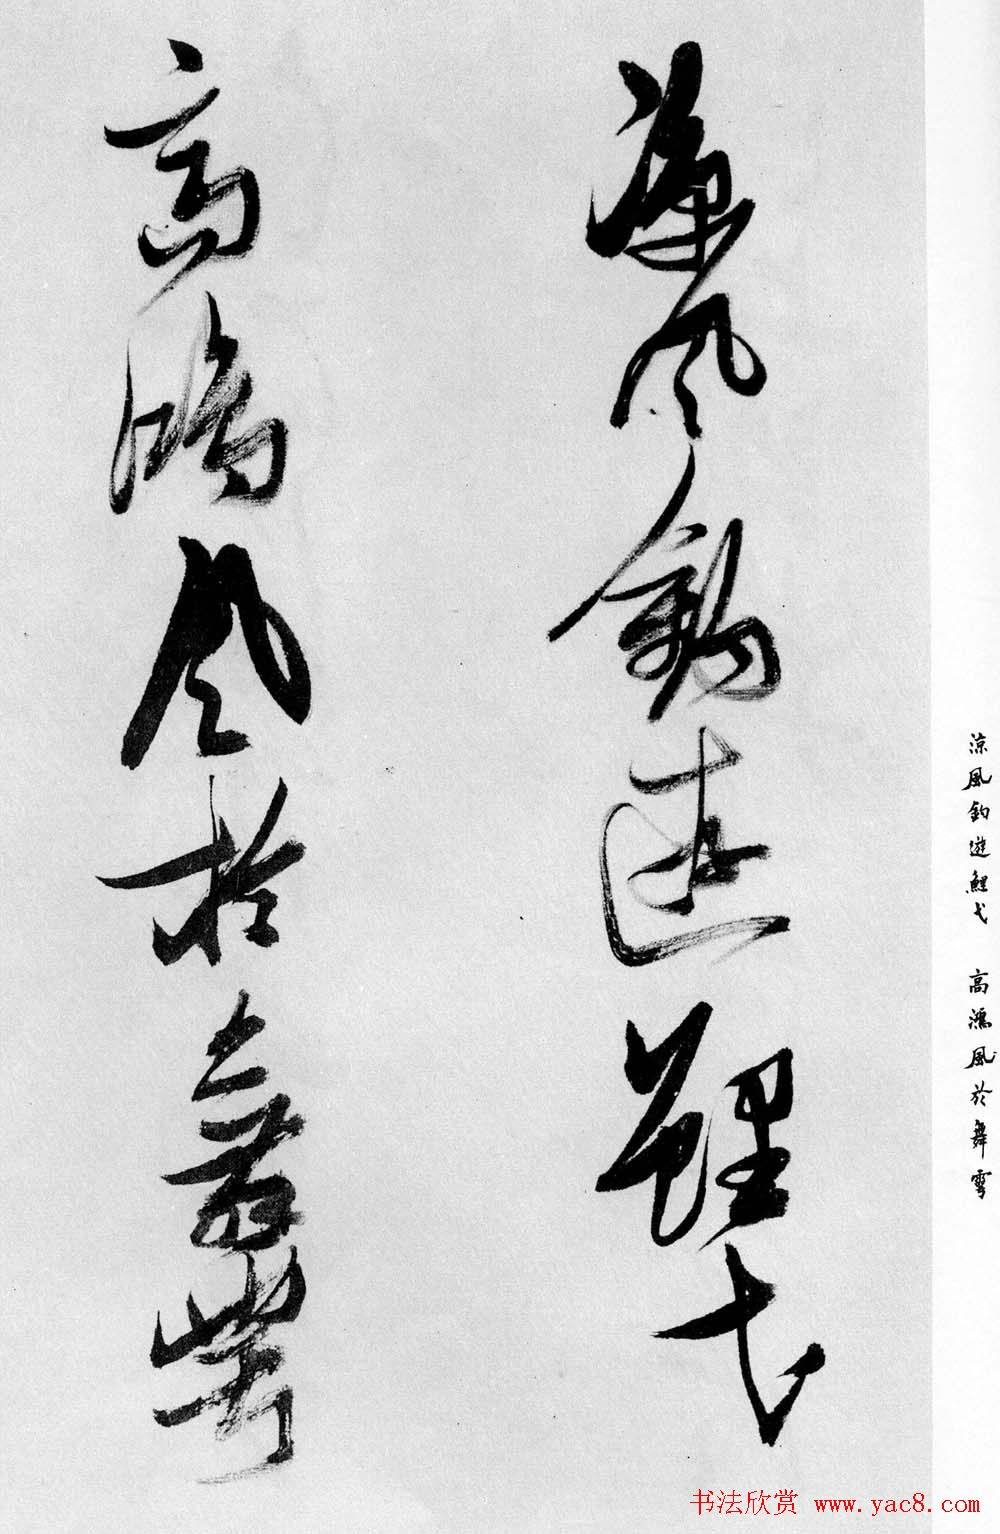 涼風釣遊鯉弋 高鴻風於舞雩
涼風釣遊鯉弋
高鴻風於舞雩
书法欣赏 www.yac8.com